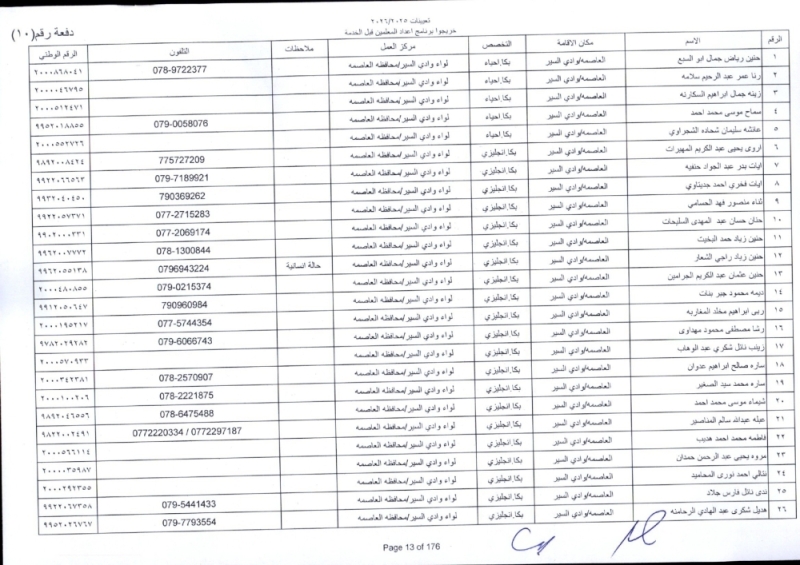 تعيينات ٢٠٢٦/٢٠٢٥
خريجوا برنامج اعداد المعلمين قبل الخدمة
دفعة رقم (١٠)
الرقم الاسم مكان الاقامة التخصص مركز العمل ملاحظات التلفون الرقم الوطني
١ حنين رياض جمال ابو السبع العاصمه/وادي السير بكا.احياء لواء وادي السير/محافظه العاصمه 078-9722377 ٢٠٠٠٨٦٨٠٤١
٢ رنا عمر عبد الرحيم سلامه العاصمه/وادي السير بكا.احياء لواء وادي السير/محافظه العاصمه ٢٠٠٠٠٤٦٧٩٥
٣ زينه جمال ابراهيم السكارنه العاصمه/وادي السير بكا.احياء لواء وادي السير/محافظه العاصمه ٢٠٠٠٥١٢٤٧١
٤ سماح موسى محمد احمد العاصمه/وادي السير بكا.احياء لواء وادي السير/محافظه العاصمه 079-0058076 ٩٩٥٢٠١٨٨٥٥
٥ عائشه سليمان شحاده الشجراوي العاصمه/وادي السير بكا.احياء لواء وادي السير/محافظه العاصمه ٢٠٠٠٥٥٢٧٢٦
٦ اروى يحيى عبد الكريم المهيرات العاصمه/وادي السير بكا.انجليزي لواء وادي السير/محافظه العاصمه 775727209 ٩٨٩٢٠٠٨٤٢٤
٧ ايات بدر عبد الجواد حنفيه العاصمه/وادي السير بكا.انجليزي لواء وادي السير/محافظه العاصمه 079-7189921 ٩٩٢٢٠٦٦٥٦٣
٨ ايات فخري احمد جديتاوي العاصمه/وادي السير بكا.انجليزي لواء وادي السير/محافظه العاصمه 790369262 ٩٩٣٢٠٤٠٤٥٠
٩ ثناء منصور فهد الحسامي العاصمه/وادي السير بكا.انجليزي لواء وادي السير/محافظه العاصمه 077-2715283 ٩٩٢٢٠٥٧٣٧١
١٠ حنان حسان عبد المهدى السليحات العاصمه/وادي السير بكا.انجليزي لواء وادي السير/محافظه العاصمه 077-2069174 ٩٩٠٢٠٠٠٣٣١
١١ حنين زياد حمد البخيت العاصمه/وادي السير بكا.انجليزي لواء وادي السير/محافظه العاصمه 078-1300844 ٩٩٦٢٠٠٧٧٧٢
١٢ حنين زياد راجي الشعار العاصمه/وادي السير بكا.انجليزي لواء وادي السير/محافظه العاصمه حالة انسانية 0796943224 ٩٩٦٢٠٥٥١٣٨
١٣ حنين عثمان عبد الكريم الجرامين العاصمه/وادي السير بكا.انجليزي لواء وادي السير/محافظه العاصمه 079-0215374 ٢٠٠٠٤٨٠٨٥٥
١٤ ديمه محمود جبر بنات العاصمه/وادي السير بكا.انجليزي لواء وادي السير/محافظه العاصمه 790960984 ٩٩١٢٠٥٠٦٤٧
١٥ ربى ابراهيم مخلد المغاربه العاصمه/وادي السير بكا.انجليزي لواء وادي السير/محافظه العاصمه 077-5744354 ٢٠٠٠١٩٥٢١٧
١٦ رشا مصطفى محمود مهداوى العاصمه/وادي السير بكا.انجليزي لواء وادي السير/محافظه العاصمه 079-6066743 ٩٧٨٢٠٢٩٢٨٢
١٧ زينب نائل شكري عبد الوهاب العاصمه/وادي السير بكا.انجليزي لواء وادي السير/محافظه العاصمه ٢٠٠٠٥٧٠٩٣٣
١٨ ساره صالح ابراهيم عدوان العاصمه/وادي السير بكا.انجليزي لواء وادي السير/محافظه العاصمه 078-2570907 ٢٠٠٠٣٤٢٣٨١
١٩ ساره محمد سيد الصغير العاصمه/وادي السير بكا.انجليزي لواء وادي السير/محافظه العاصمه 078-2221875 ٢٠٠٠١٠٠٢٠٦
٢٠ شيماء موسى محمد احمد العاصمه/وادي السير بكا.انجليزي لواء وادي السير/محافظه العاصمه 078-6475488 ٩٨٩٢٠٤٦٥٥٦
٢١ عبله عبدالله سالم المناصير العاصمه/وادي السير بكا.انجليزي لواء وادي السير/محافظه العاصمه 0772220334 / 0772297187 ٩٨٢٢٠٠٢٤٩١
٢٢ فاطمه محمد احمد هديب العاصمه/وادي السير بكا.انجليزي لواء وادي السير/محافظه العاصمه ٢٠٠٠٥٦٦١١٤
٢٣ مروه يحيى عبد الرحمن حمدان العاصمه/وادي السير بكا.انجليزي لواء وادي السير/محافظه العاصمه ٢٠٠٠٠٣٥٩٨٧
٢٤ نتالي احمد نورى المحاميد العاصمه/وادي السير بكا.انجليزي لواء وادي السير/محافظه العاصمه ٢٠٠٠٢٩٢٣٥٥
٢٥ ندى نائل فارس جلاد العاصمه/وادي السير بكا.انجليزي لواء وادي السير/محافظه العاصمه 079-5441433 ٩٩٢٢٠٦٧٣٥٨
٢٦ هديل شكرى عبد الهادي الرحامنه العاصمه/وادي السير بكا.انجليزي لواء وادي السير/محافظه العاصمه 079-7793554 ٩٩٥٢٠٢٦٧٦٧
Page 13 of 176